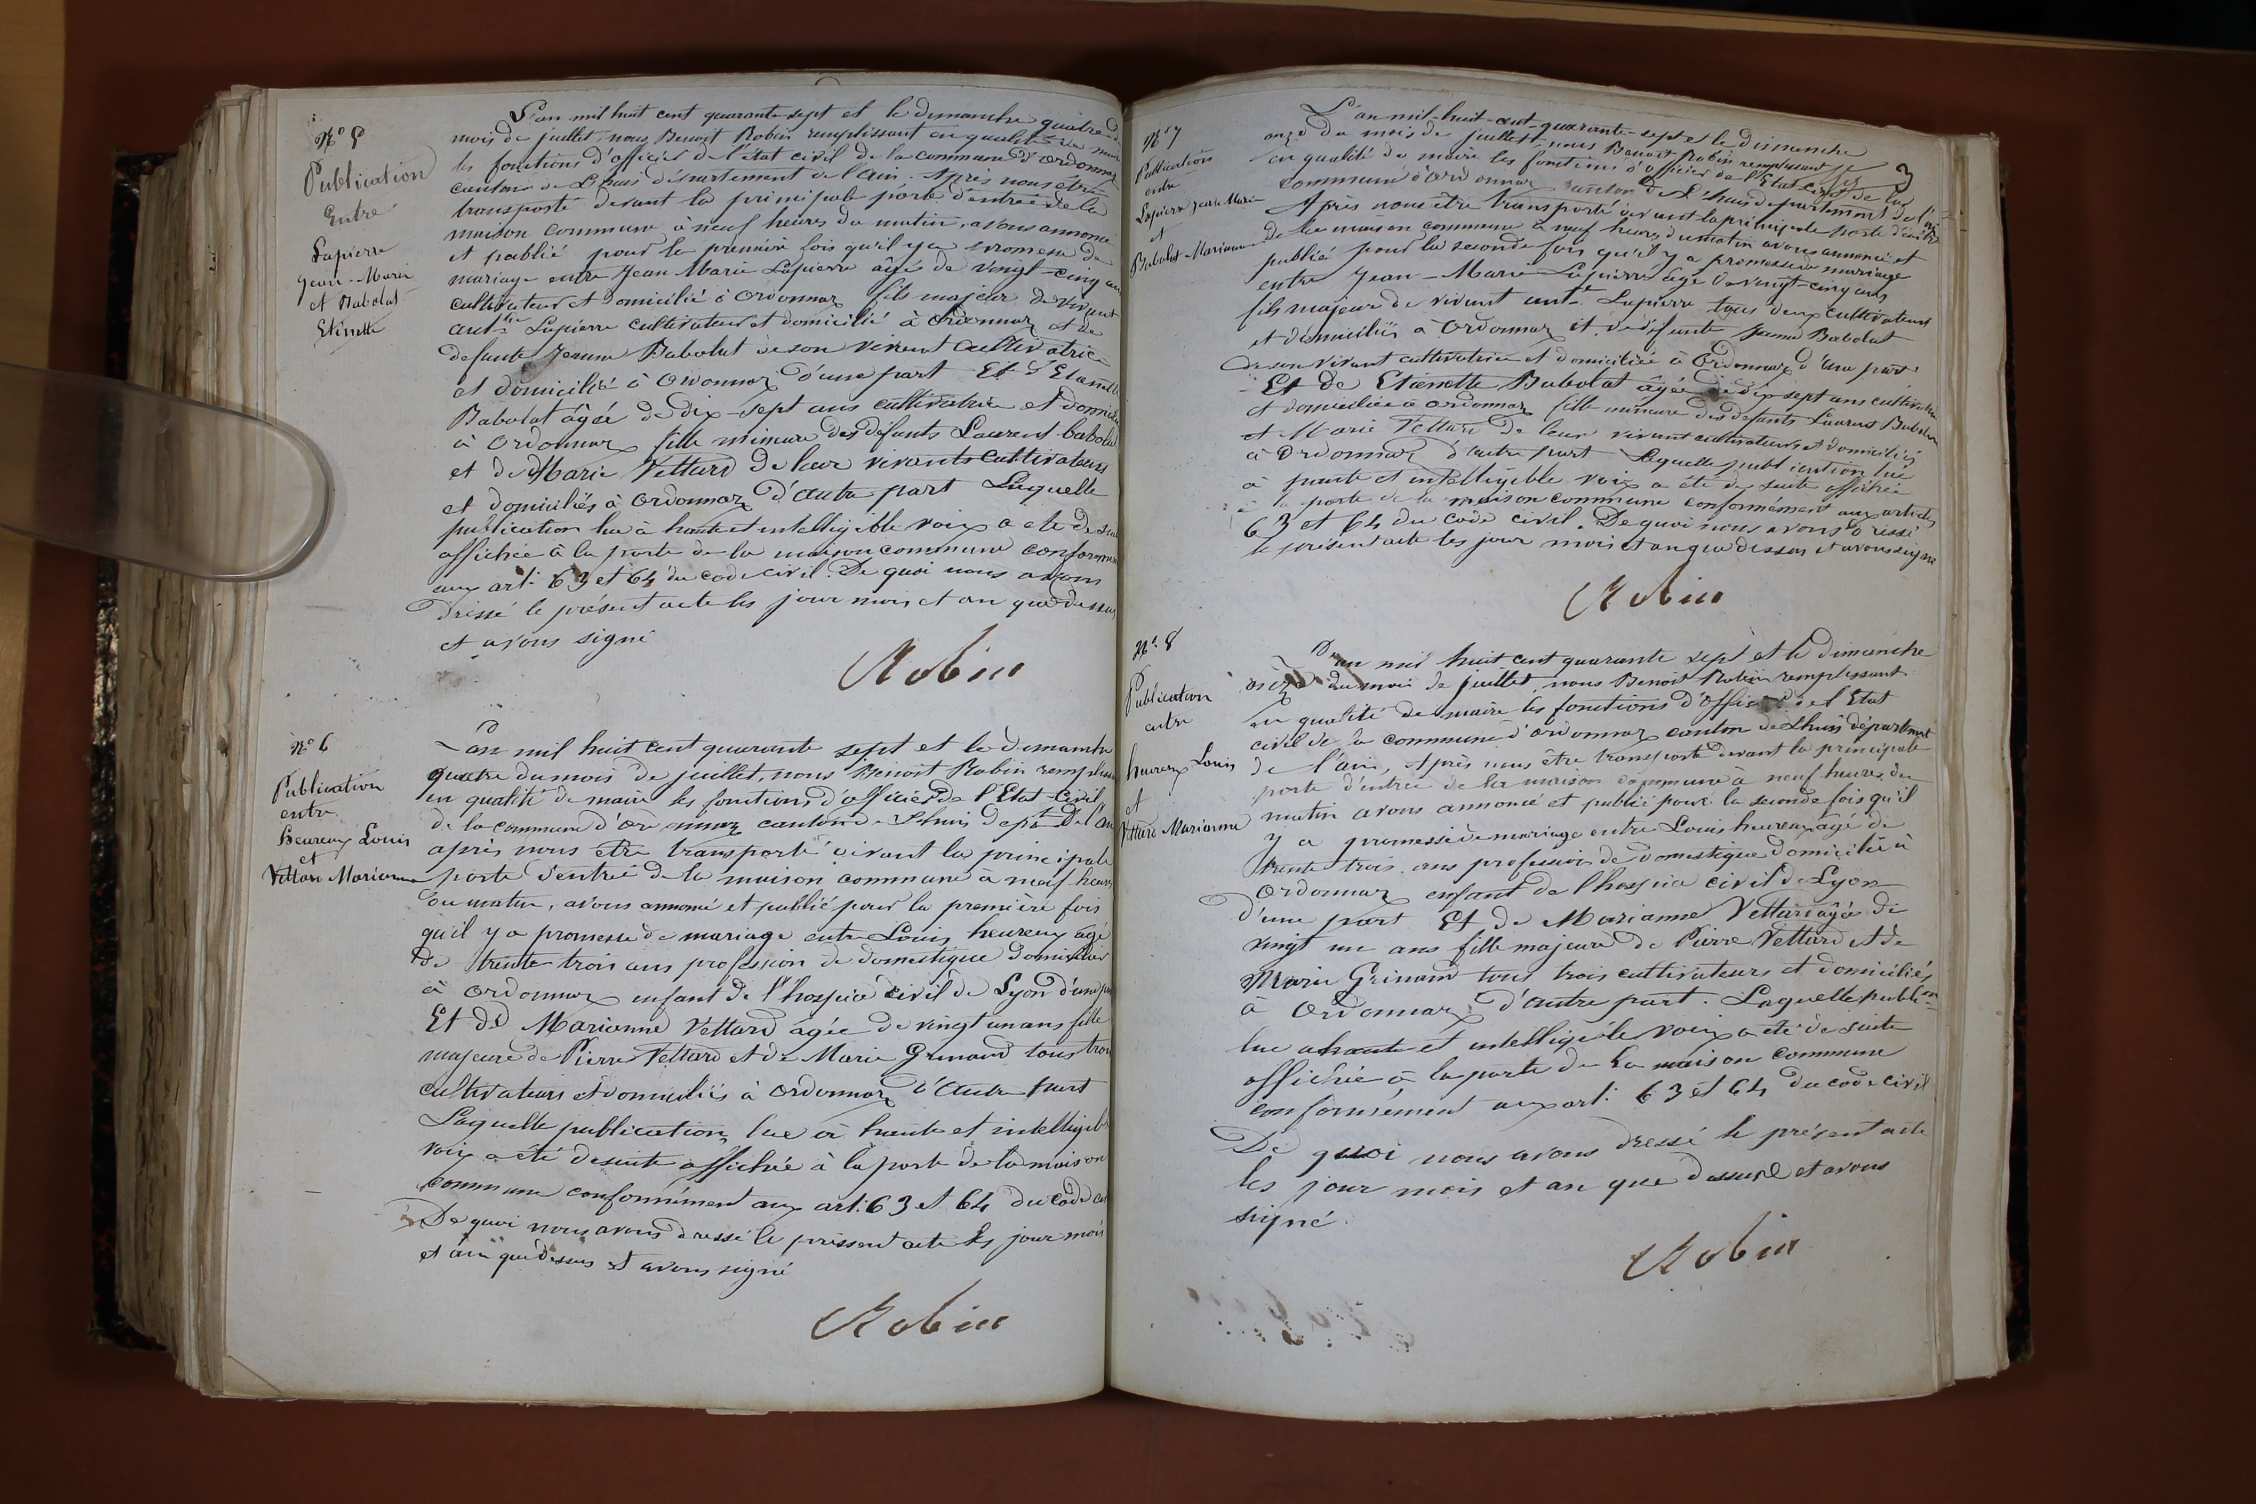 N° 5
Publication
Entre
Lapierre
Jean-Marie
et Babolat
Etienette
L'an mil huit cent quarante sept et le dimanche quatre du
mois de juillet, nous Benoit Robin remplissant en qualité de maire
les fonctions d'officier de l'état civil de la commune d'ordonnaz
canton de Lhuis département de l'ain. Après nous être
transporté devant la principale porte d'entrée de la
maison commune à neuf heures du matin, avons annoncé
et publié pour la première fois qu'il y a promesse de
mariage entre Jean Marie Lapierre âgé de vingt-cinq ans
cultivateur et domicilié à Ordonnaz fils majeur de vivant
Lapierre cultivateur et domicilié à Ordonnaz et de
defunte Jeanne Babolat de son vivant cultivatrice
et domicilié à Ordonnaz d'une part Et d'Etienette
Babolat âgée de dix-sept ans cultivatrice et domiciliée
à Ordonnaz fille mineure des défunts Laurent babolat
et de Marie Vettard de leur vivants cultivateurs
et domiciliés à Ordonnaz d'autre part Laquelle
publication lue à haute et intelligible voix a été de suite
affichée à la porte de la maison commune conformément
aux art. 63 et 64 du code civil. De quoi nous avons
dressé le présent acte les jour mois et an que dessus
et avons signé
Robin
N° 6
Publication
entre
heureux Louis
et
Vettard Marianne
L'an mil huit cent quarante sept et le dimanche
quatre du mois de juillet, nous Benoit Robin remplissant
en qualité de maire les fonctions d'officier de l'Etat-civil
de la commune d'ordonnaz canton de Lhuis dept de l'ain
après nous être transporté devant la principale
porte d'entrée de la maison commune à neuf heures
du matin, avons annoncé et publié pour la première fois
qu'il y a promesse de mariage entre Louis heureux âgé
de trente trois ans profession de domestique domicilié
à Ordonnaz enfant de l'hospice civil de Lyon d'une part
Et de Marianne Vettard âgée de vingt un ans fille
majeure de Pierre Vettard et de Marie Grinand tous trois
cultivateurs et domiciliés à Ordonnaz d'autre part
Laquelle publication, lue à haute et intelligible
voix a été de suite affichée à la porte de la maison
commune conformément aux art. 63 et 64 du code civil
De quoi nous avons dressé le présent acte les jour mois
et an que dessus et avons signé
Robin
3
N° 7
Publication
entre
Lapierre Jean Marie
et
Babolat Marianne
L'an mil-huit-cent-quarante-sept et le dimanche
onze du mois de juillet, nous Benoit Robin remplissant
en qualité de maire les fonctions d'officier de l'Etat-civil de la
commune d'ordonnaz canton de Lhuis département de l'ain
Après nous être transporté devant la principale porte d'entrée
de la maison commune à neuf heures du matin avons annoncé et
publié pour la seconde fois qu'il y a promesse de mariage
entre Jean-Marie Lapierre âgé de vingt-cinq ans
fils majeur de vivant Lapierre tous deux cultivateurs
et domiciliés à Ordonnaz et de défunte Jeanne Babolat
de son vivant cultivatrice et domiciliée à Ordonnaz d'une part
Et de Etienette Babolat âgée de dix sept ans cultivatrice
et domiciliée à ordonnaz fille mineure des défunts Laurent Babolat
et Marie Vettard de leur vivant cultivateurs et domiciliés
à Ordonnaz d'autre part Laquelle publication lue
à haute et intelligible voix a été de suite affichée
à la porte de la maison commune conformément aux articles
63 et 64 du code civil. De quoi nous avons dressé
le présent acte les jour mois et an que dessus et avons signé
Robin
N° 8
Publication
entre
heureux Louis
et
Vettard Marianne
L'an mil huit cent quarante sept et le dimanche
onze du mois de juillet, nous Benoit Robin remplissant
en qualité de maire les fonctions d'officier de l'Etat
civil de la commune d'ordonnaz canton de Lhuis département
de l'ain, Après nous être transporté devant la principale
porte d'entrée de la maison commune à neuf heures du
matin avons annoncé et publié pour la seconde fois qu'il
y a promesse de mariage entre Louis heureux âgé de
trente trois ans profession de domestique domicilié à
Ordonnaz enfant de l'hospice civil de Lyon
d'une part Et de Marianne Vettard âgée de
vingt un ans fille majeure de Pierre Vettard et de
Marie Grinand tous trois cultivateurs et domiciliés
à Ordonnaz d'autre part. Laquelle publi-on
lue a haute et intelligible voix a été de suite
affichée à la porte de la maison commune
conformément aux art. 63 et 64 du code civil
De quoi nous avons dressé le présent acte
les jour mois et an que dessus et avons
signé.
Robin